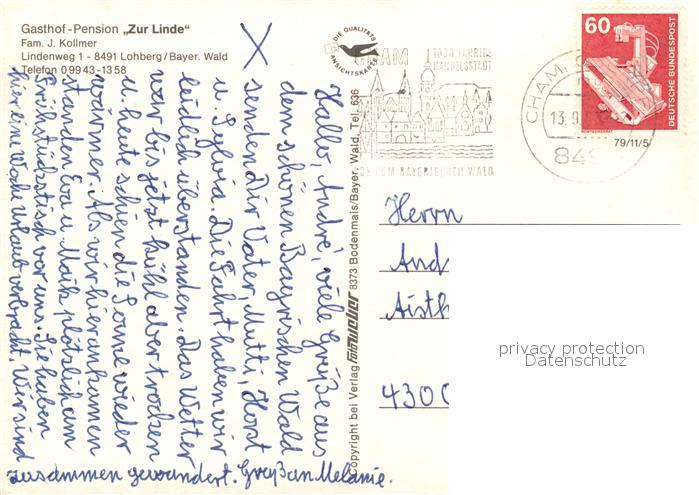 Gasthof-Pension „Zur Linde"
Fam. J. Kollmer
Lindenweg 1 - 8491 Lohberg/Bayer. Wald
Telefon 0 99 43 - 13 58
Hallo, André, viele Grüße aus
dem schönen Bayrischen Wald
senden Dir Vater, Mutti, Horst
u. Sylvia. Die Fahrt haben wir
leidlich überstanden. Das Wetter
war bis jetzt kühl aber trocken
u. heute schien die Sonne wieder
wärmer. Als wir hier ankamen
standen Eva u. Maik plötzlich am
Frühstückstisch vor uns. Sie haben
hier eine Woche Urlaub verbracht. Wir sind
zusammen gewandert. Gruß an Melanie.
Copyright bei Verlag foto weber 8373 Bodenmais/Bayer. Wald, Tel. 636
DIE QUALITÄTS
ANSICHTSKARTE
CHAM
1000 JÄHRIGE
HANDELSSTADT
TOR ZUM BAYERISCHEN WALD
CHAM,
13.9.
849
60
DEUTSCHE BUNDESPOST
RÖNTGENGERÄT
79/11/5
Herrn
And
Aisth
4300
privacy protection
Datenschutz